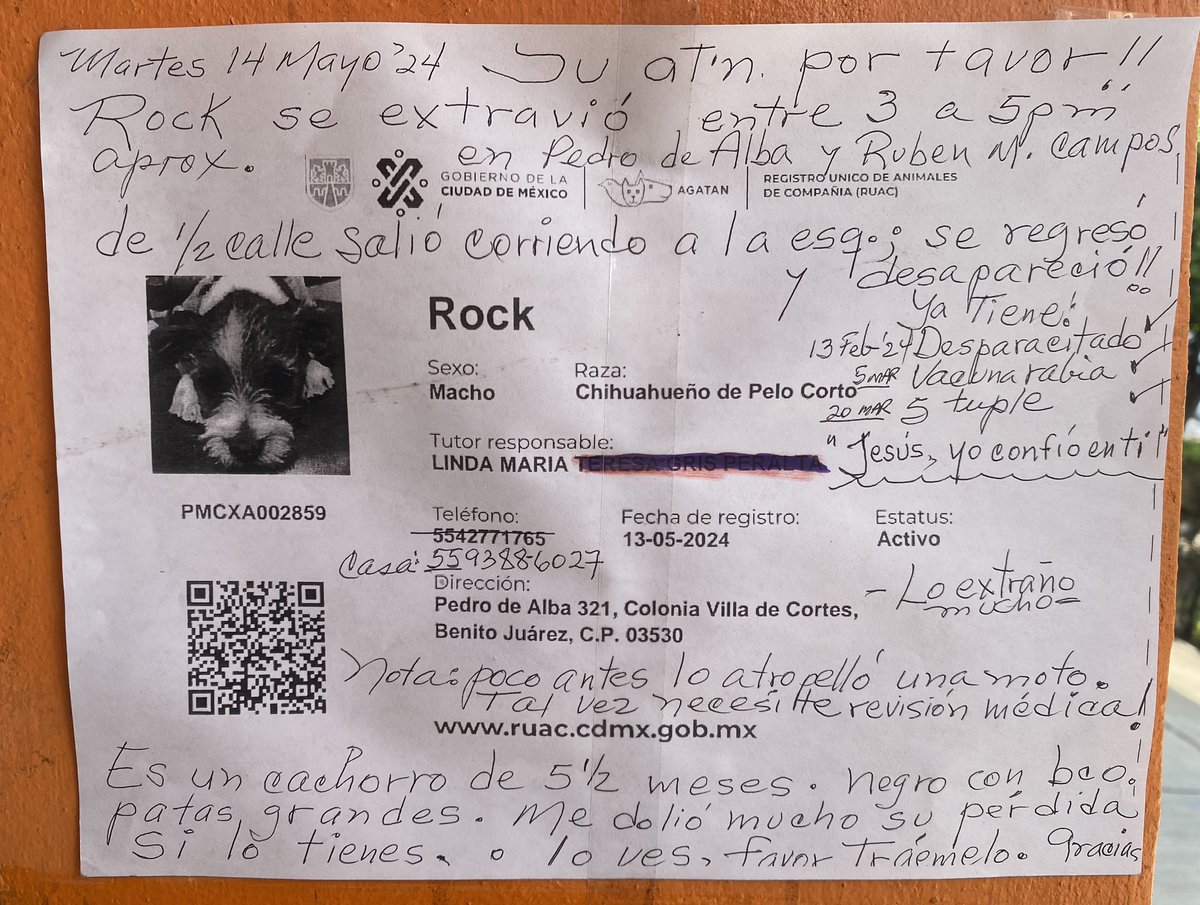 Martes 14 Mayo '24 Su at'n. por favor!!
Rock se extravió entre 3 a 5pm
aprox. en Pedro de Alba y Ruben M. Campos
GOBIERNO DE LA
CIUDAD DE MÉXICO
AGATAN
REGISTRO UNICO DE ANIMALES
DE COMPAÑIA (RUAC)
de 1/2 calle salió corriendo a la esq.; se regresó
y desapareció!!
Ya Tiene:
13 Feb '24 Desparacitado ✓
5 MAR Vacuna rabia ✓
20 MAR 5 tuple ✓
"Jesús, yo confío en ti"
Rock
Sexo:
Macho
Raza:
Chihuahueño de Pelo Corto
Tutor responsable:
LINDA MARIA TERESA GRIS PERALTA
PMCXA002859
Teléfono:
5542771765
Casa: 559388-6027
Fecha de registro:
13-05-2024
Estatus:
Activo
Dirección:
Pedro de Alba 321, Colonia Villa de Cortes,
Benito Juárez, C.P. 03530
- Lo extraño
mucho -
Nota: poco antes lo atropelló una moto.
Tal vez necesitte revisión médica!
www.ruac.cdmx.gob.mx
Es un cachorro de 5 1/2 meses. negro con bco.
patas grandes. Me dolió mucho su pérdida
Si lo tienes, o lo ves, favor Tráemelo. Gracias